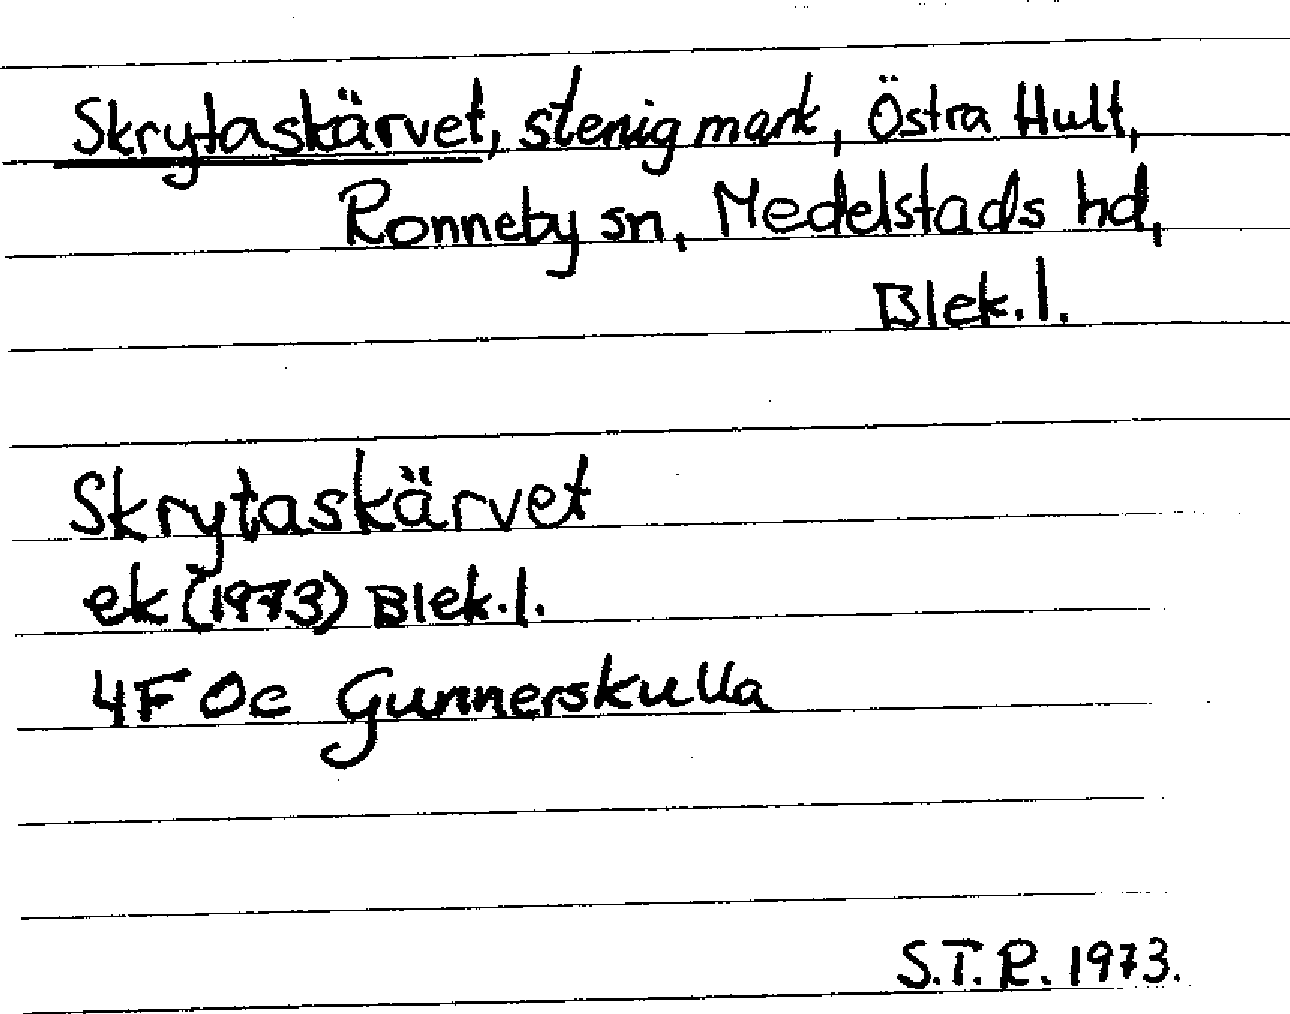 Skrytaskärvet, stenig mark, Östra Hult,
Ronneby sn, Medelstads hd,
Blek. l.
Skrytaskärvet
ek (1973) Blek. l.
4F Oc Gunnerskulla
S.T.R. 1973.